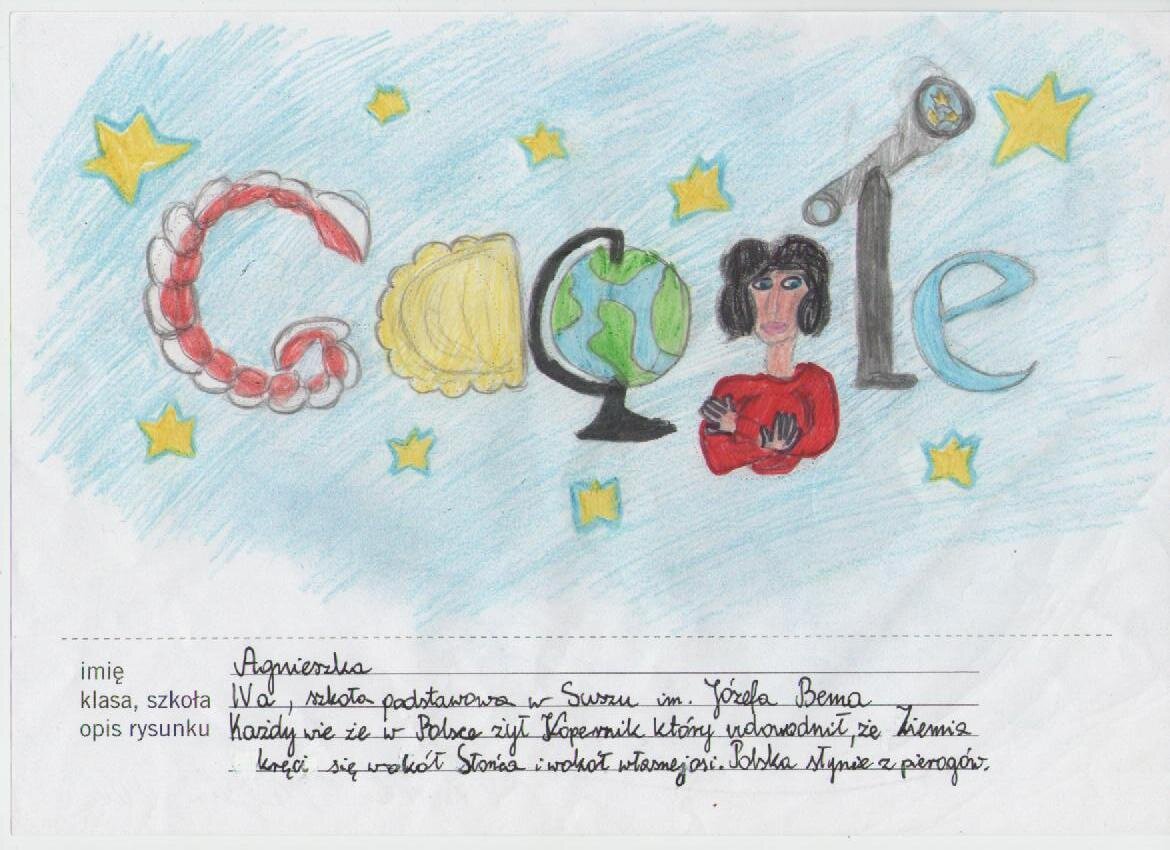 Google
imię Agnieszka
klasa, szkoła IVa, szkoła podstawowa w Suszu im. Józefa Bema
opis rysunku Każdy wie że w Polsce żył Kopernik który udowodnił, że Ziemia
kręci się wokół Słońca i wokół własnej osi. Polska słynie z pierogów.